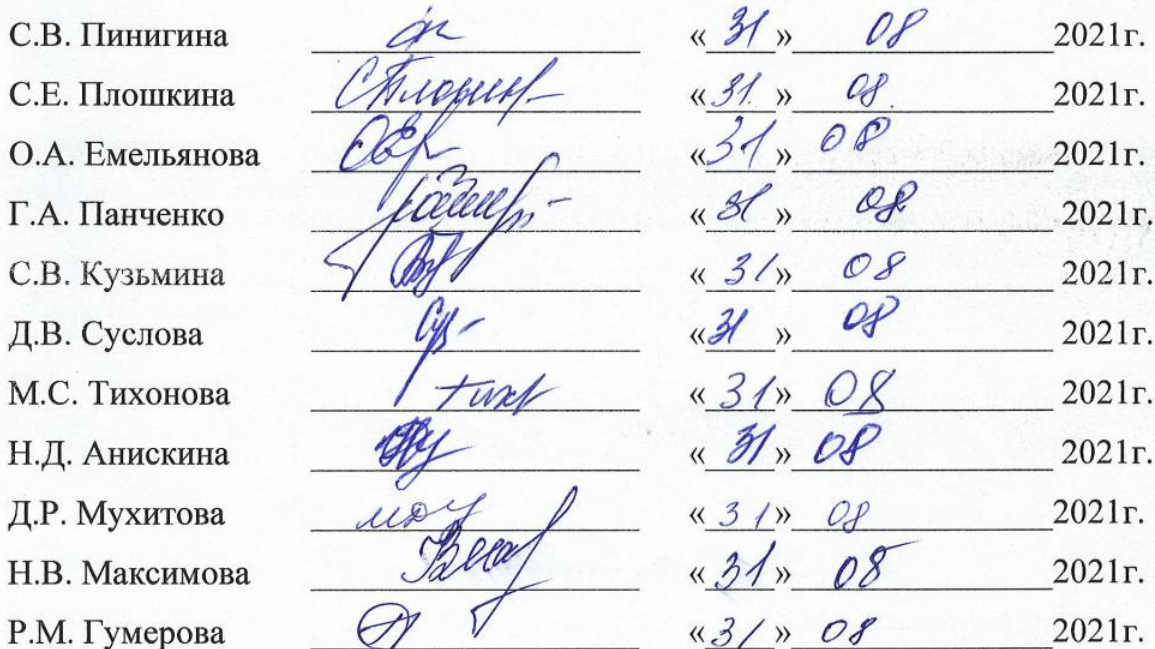 С.В. Пинигина «31» 08 2021г.
С.Е. Плошкина «31» 08 2021г.
О.А. Емельянова «31» 08 2021г.
Г.А. Панченко «31» 08 2021г.
С.В. Кузьмина «31» 08 2021г.
Д.В. Суслова «31» 08 2021г.
М.С. Тихонова «31» 08 2021г.
Н.Д. Анискина «31» 08 2021г.
Д.Р. Мухитова «31» 08 2021г.
Н.В. Максимова «31» 08 2021г.
Р.М. Гумерова «31» 08 2021г.